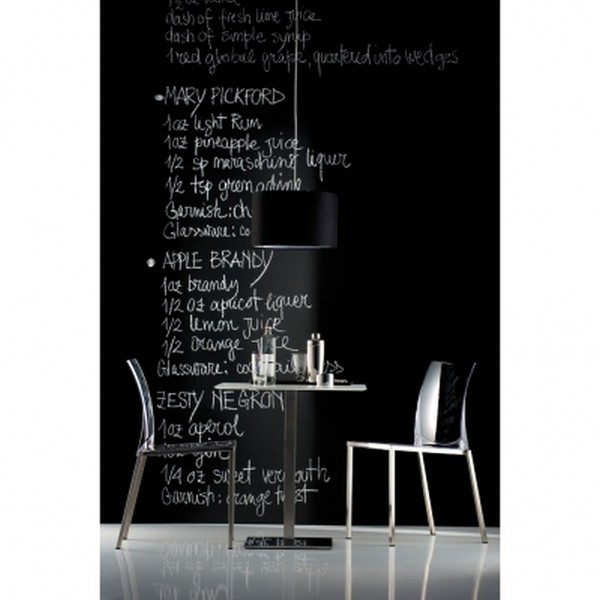 dash of fresh lime juice
dash of simple syrup
1 red global grape, quartered into wedges
MARY PICKFORD
1oz light Rum
1oz pineapple juice
1/2 sp maraschino liquer
1/2 tsp grenadine
Garnish: ch
Glassware: co
APPLE BRANDY
1oz brandy
1/2 oz apricot liquer
1/2 lemon juice
1/2 orange juice
Glassware:
ZESTY NEGRON
1oz aperol
1/4 oz sweet vermouth
Garnish: orange twist